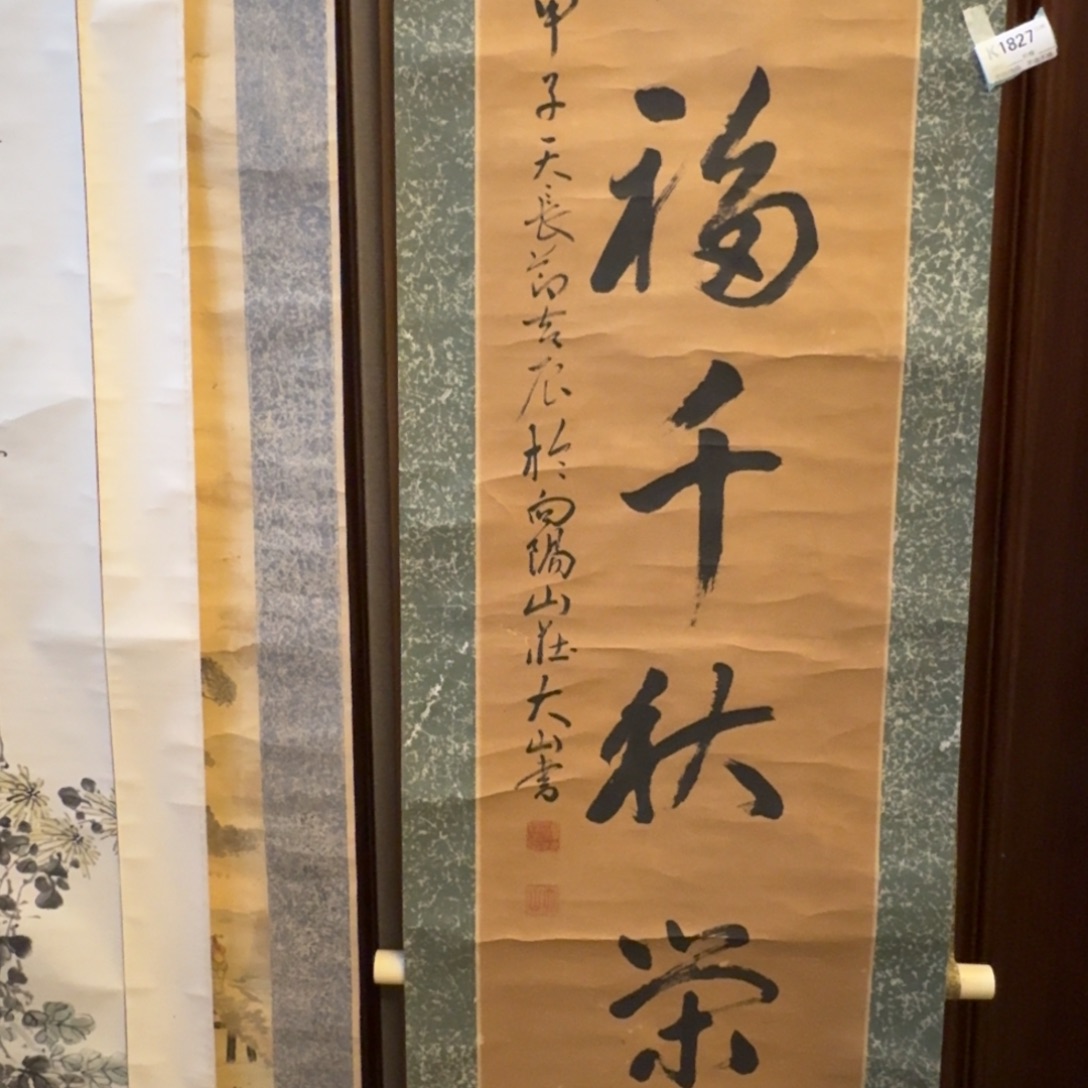 福千秋栄
甲子天長節吉辰於向陽山荘大山書
K1827